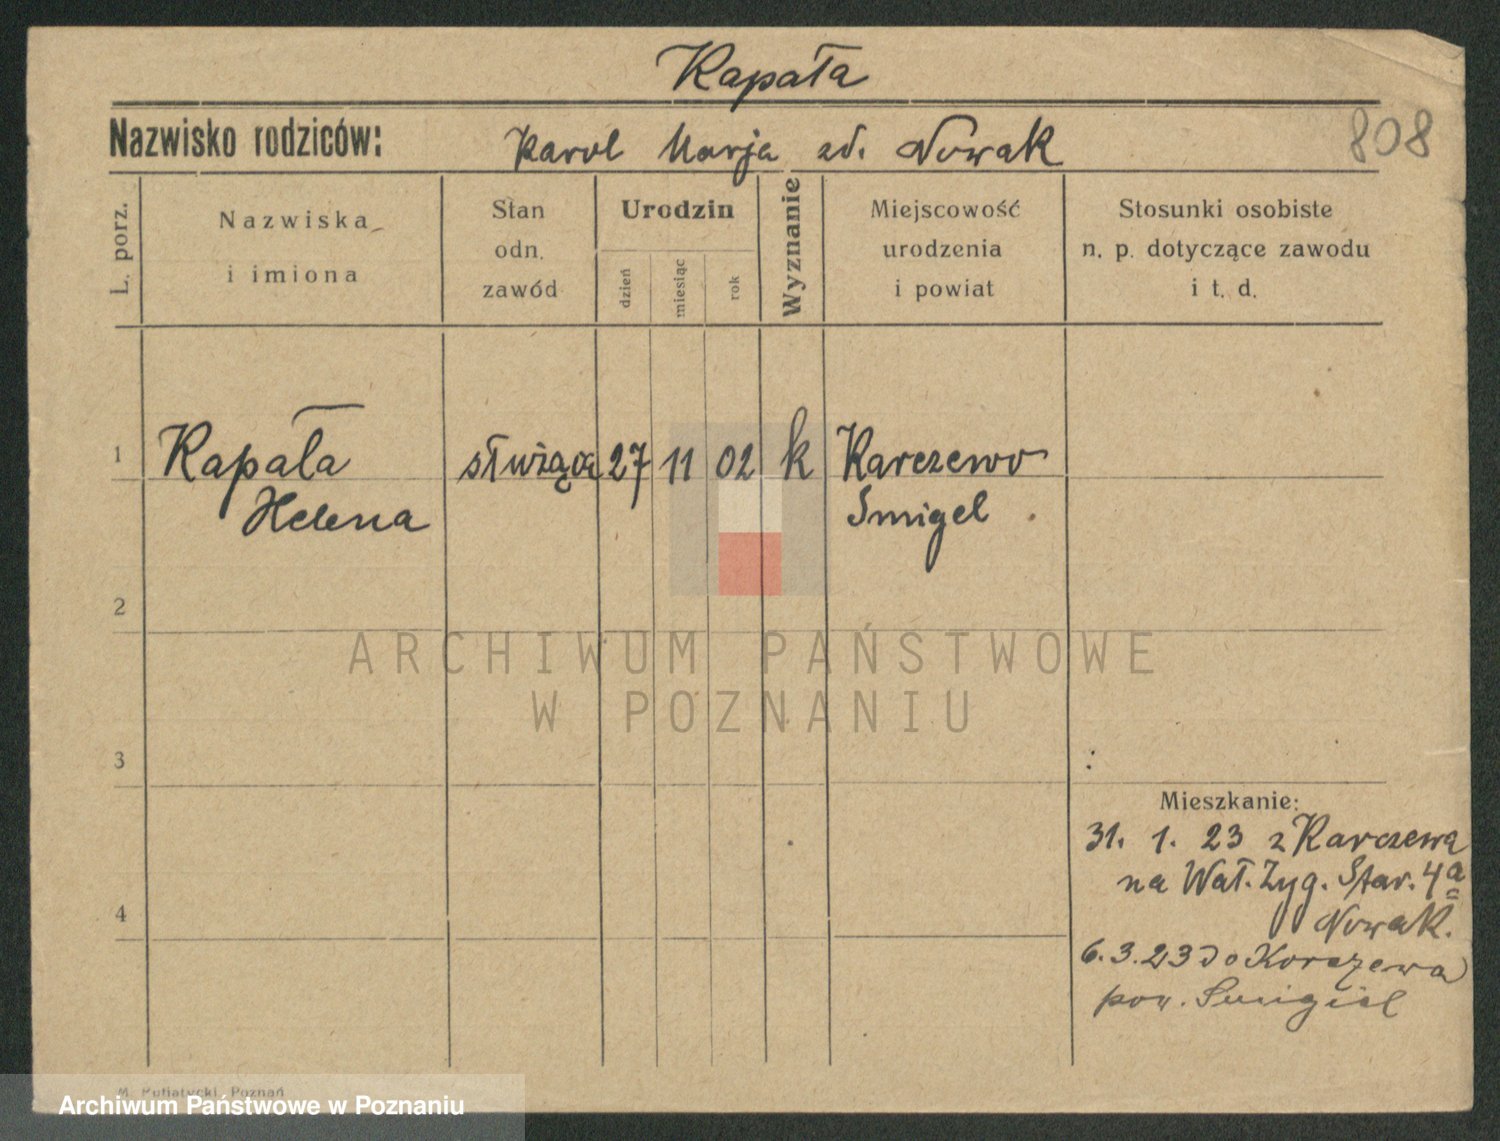 Kapała
Nazwisko rodziców: Karol Marja zd. Nowak 808
L. porz.
Nazwiska
i imiona
Stan
odn.
zawód
Urodzin
dzień
miesiąc
rok
Wyznanie
Miejscowość
urodzenia
i powiat
Stosunki osobiste
n. p. dotyczące zawodu
i t. d.
1 Kapała służąca 27 11 02 k Karczewo
Helena Smigel
2
ARCHIWUM PAŃSTWOWE
W POZNANIU
3
Mieszkanie:
31. 1. 23 z Karczewa
na Wał. Zyg. Star. 4a
4
Nowak.
6.3.23 do Korczewa
pow. Smigiel
M. Putiatycki, Poznań
Archiwum Państwowe w Poznaniu